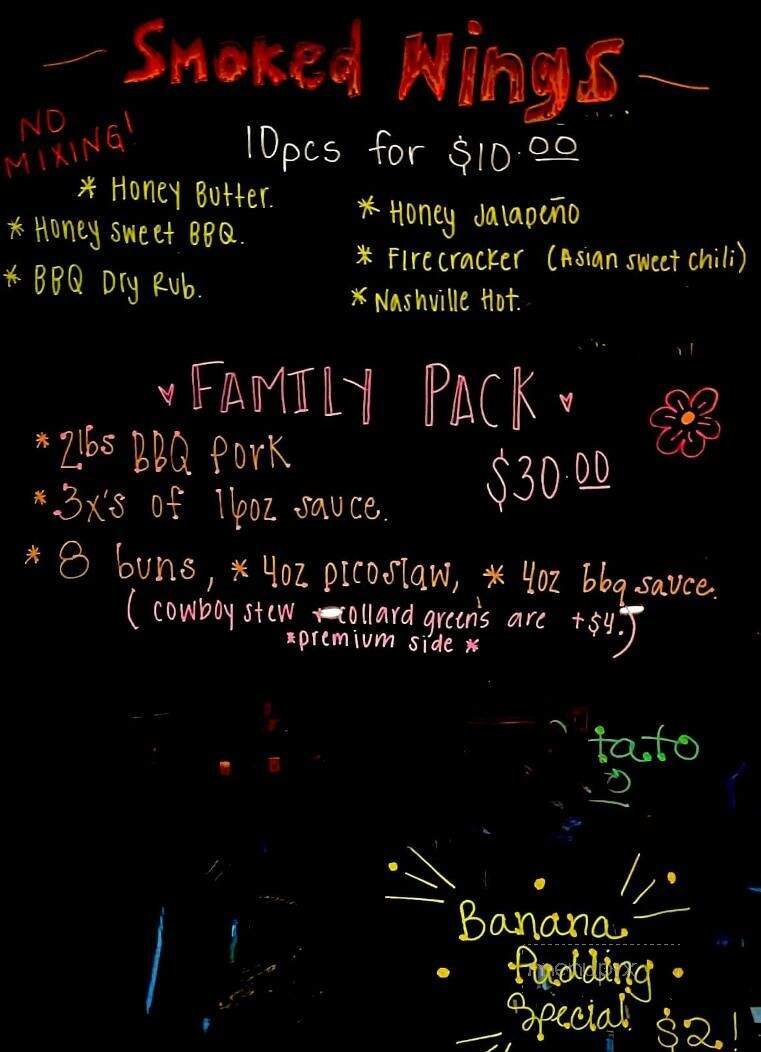 Smoked Wings
NO MIXING!
10pcs for $10.00
* Honey Butter.
* Honey Sweet BBQ.
* BBQ Dry Rub.
* Honey Jalapeño
* Firecracker (Asian sweet chili)
* Nashville Hot.
Family Pack
$30.00
* 2lbs BBQ Pork
* 3x's of 16oz sauce.
* 8 buns, * 4oz picoslaw, * 4oz bbq sauce.
( cowboy stew + collard greens are +$4.)
*premium side *
tato
Banana
Pudding
Special $2!